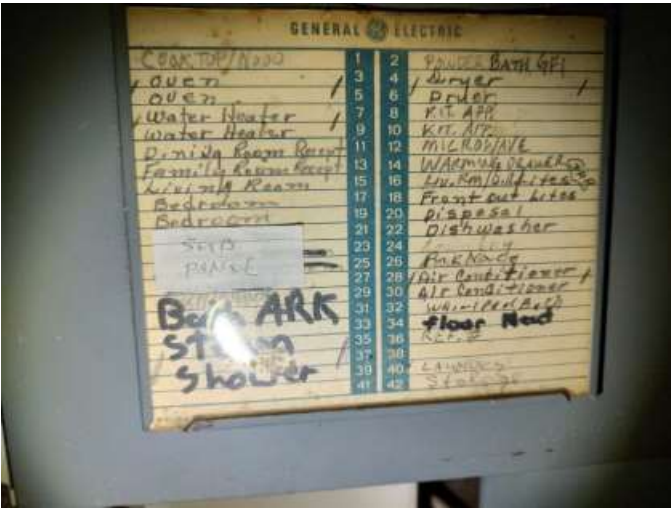 GENERAL ELECTRIC
COOKTOP/HOOD 1 2 POWDER BATH GFI
Oven 3 4 Dryer
Oven 5 6 Dryer
Water Heater 7 8 KIT. APP.
Water Heater 9 10 KIT. APP.
Dining Room Recept 11 12 MICROWAVE
Family Room Recept 13 14 WARMING DRAWER
Living Room 15 16 Liv. Rm/Out Lites
Bedroom 17 18 Front out Lites
Bedroom 19 20 Disposal
21 22 Dishwasher
SUB 23 24
PANEL 25 26
27 28 Air Conditioner
29 30 Air Conditioner
Bath ARK 31 32
33 34 floor Heat
Steam 35 36 REF.
37 38
Shower 39 40 LAUNDRY
41 42 Storage